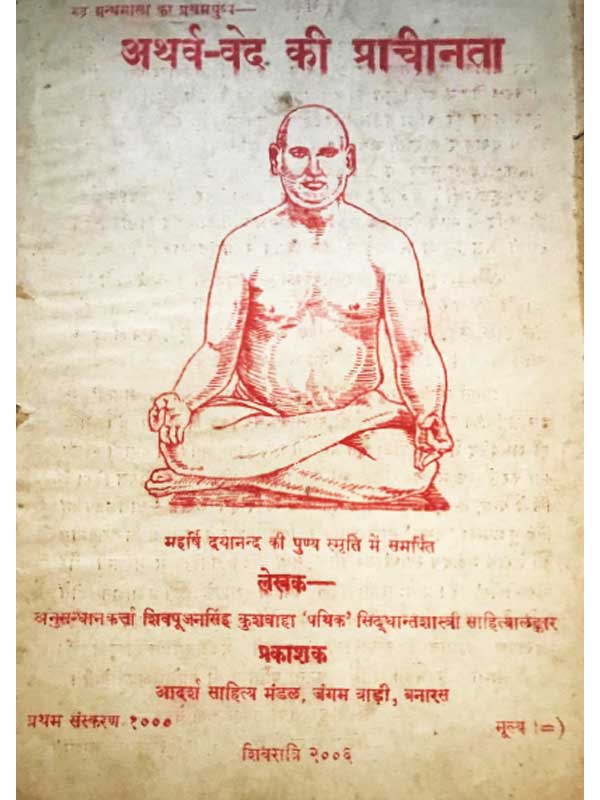 ग्रन्थमाला का प्रथमपुष्प—
अथर्व-वेद की प्राचीनता
महर्षि दयानन्द की पुण्य स्मृति में समर्पित
लेखक—
अनुसन्धानकर्त्ता शिवपूजनसिंह कुशवाहा 'पथिक' सिद्धान्तशास्त्री साहित्यालङ्कार
प्रकाशक
आदर्श साहित्य मंडल, जंगम बाड़ी, बनारस
प्रथम संस्करण १०००
मूल्य ।=)
शिवरात्रि २००६